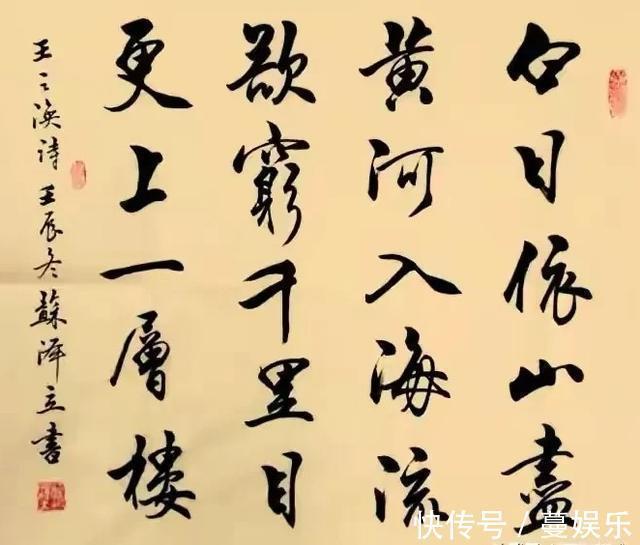 白日依山盡
黄河入海流
欲窮千里目
更上一層樓
王之渙诗 壬辰冬 蘇澤立書
快传号 / 蔓娱乐